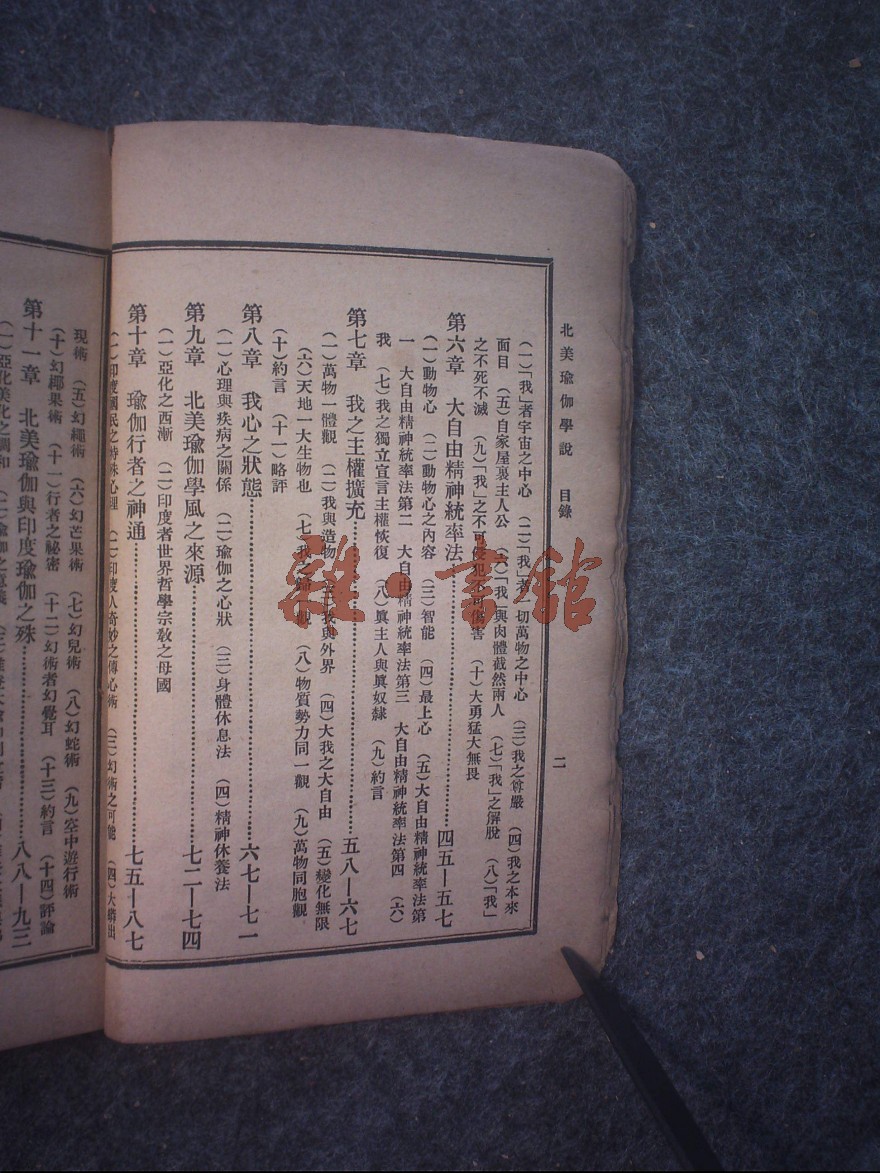 北美瑜伽學說 目錄 二
(一)「我」者宇宙之中心 (二)「我」者一切萬物之中心 (三)我之尊嚴 (四)我之本來
面目 (五)自家屋裏主人公 (六)「我」與肉體截然兩人 (七)「我」之解脫 (八)「我」
之不死不滅 (九)「我」之不可侵犯不可傷害 (十)大勇猛大無畏
第六章 大自由精神統率法 四五—五七
(一)動物心 (二)動物心之內容 (三)智能 (四)最上心 (五)大自由精神統率法第
一 大自由精神統率法第二 大自由精神統率法第三 大自由精神統率法第四 (六)
我 (七)我之獨立宣言主權恢復 (八)眞主人與眞奴隸 (九)約言
第七章 我之主權擴充 五八—六七
(一)萬物一體觀 (二)我與造物 (三)我與外界 (四)大我之大自由 (五)變化無限
(六)天地一大生物也 (七)我之歸一觀 (八)物質勢力同一觀 (九)萬物同胞觀
(十)約言 (十一)略評
第八章 我心之狀態 六七—七一
(一)心理與疾病之關係 (二)瑜伽之心狀 (三)身體休息法 (四)精神休養法
第九章 北美瑜伽學風之來源 七二—七四
(一)亞化之西漸 (二)印度者世界哲學宗敎之母國
第十章 瑜伽行者之神通 七五—八七
(一)印度國民之特殊心理 (二)印度人奇妙之傳心術 (三)幻術之可能 (四)大蟒出
現術 (五)幻繩術 (六)幻芒果術 (七)幻兒術 (八)幻蛇術 (九)空中遊行術
(十)幻椰果術 (十一)行者之秘密 (十二)幻術者幻覺耳 (十三)約言 (十四)評論
第十一章 北美瑜伽與印度瑜伽之殊 八八—九三
(一)亞化美化之調和
雜·書舘